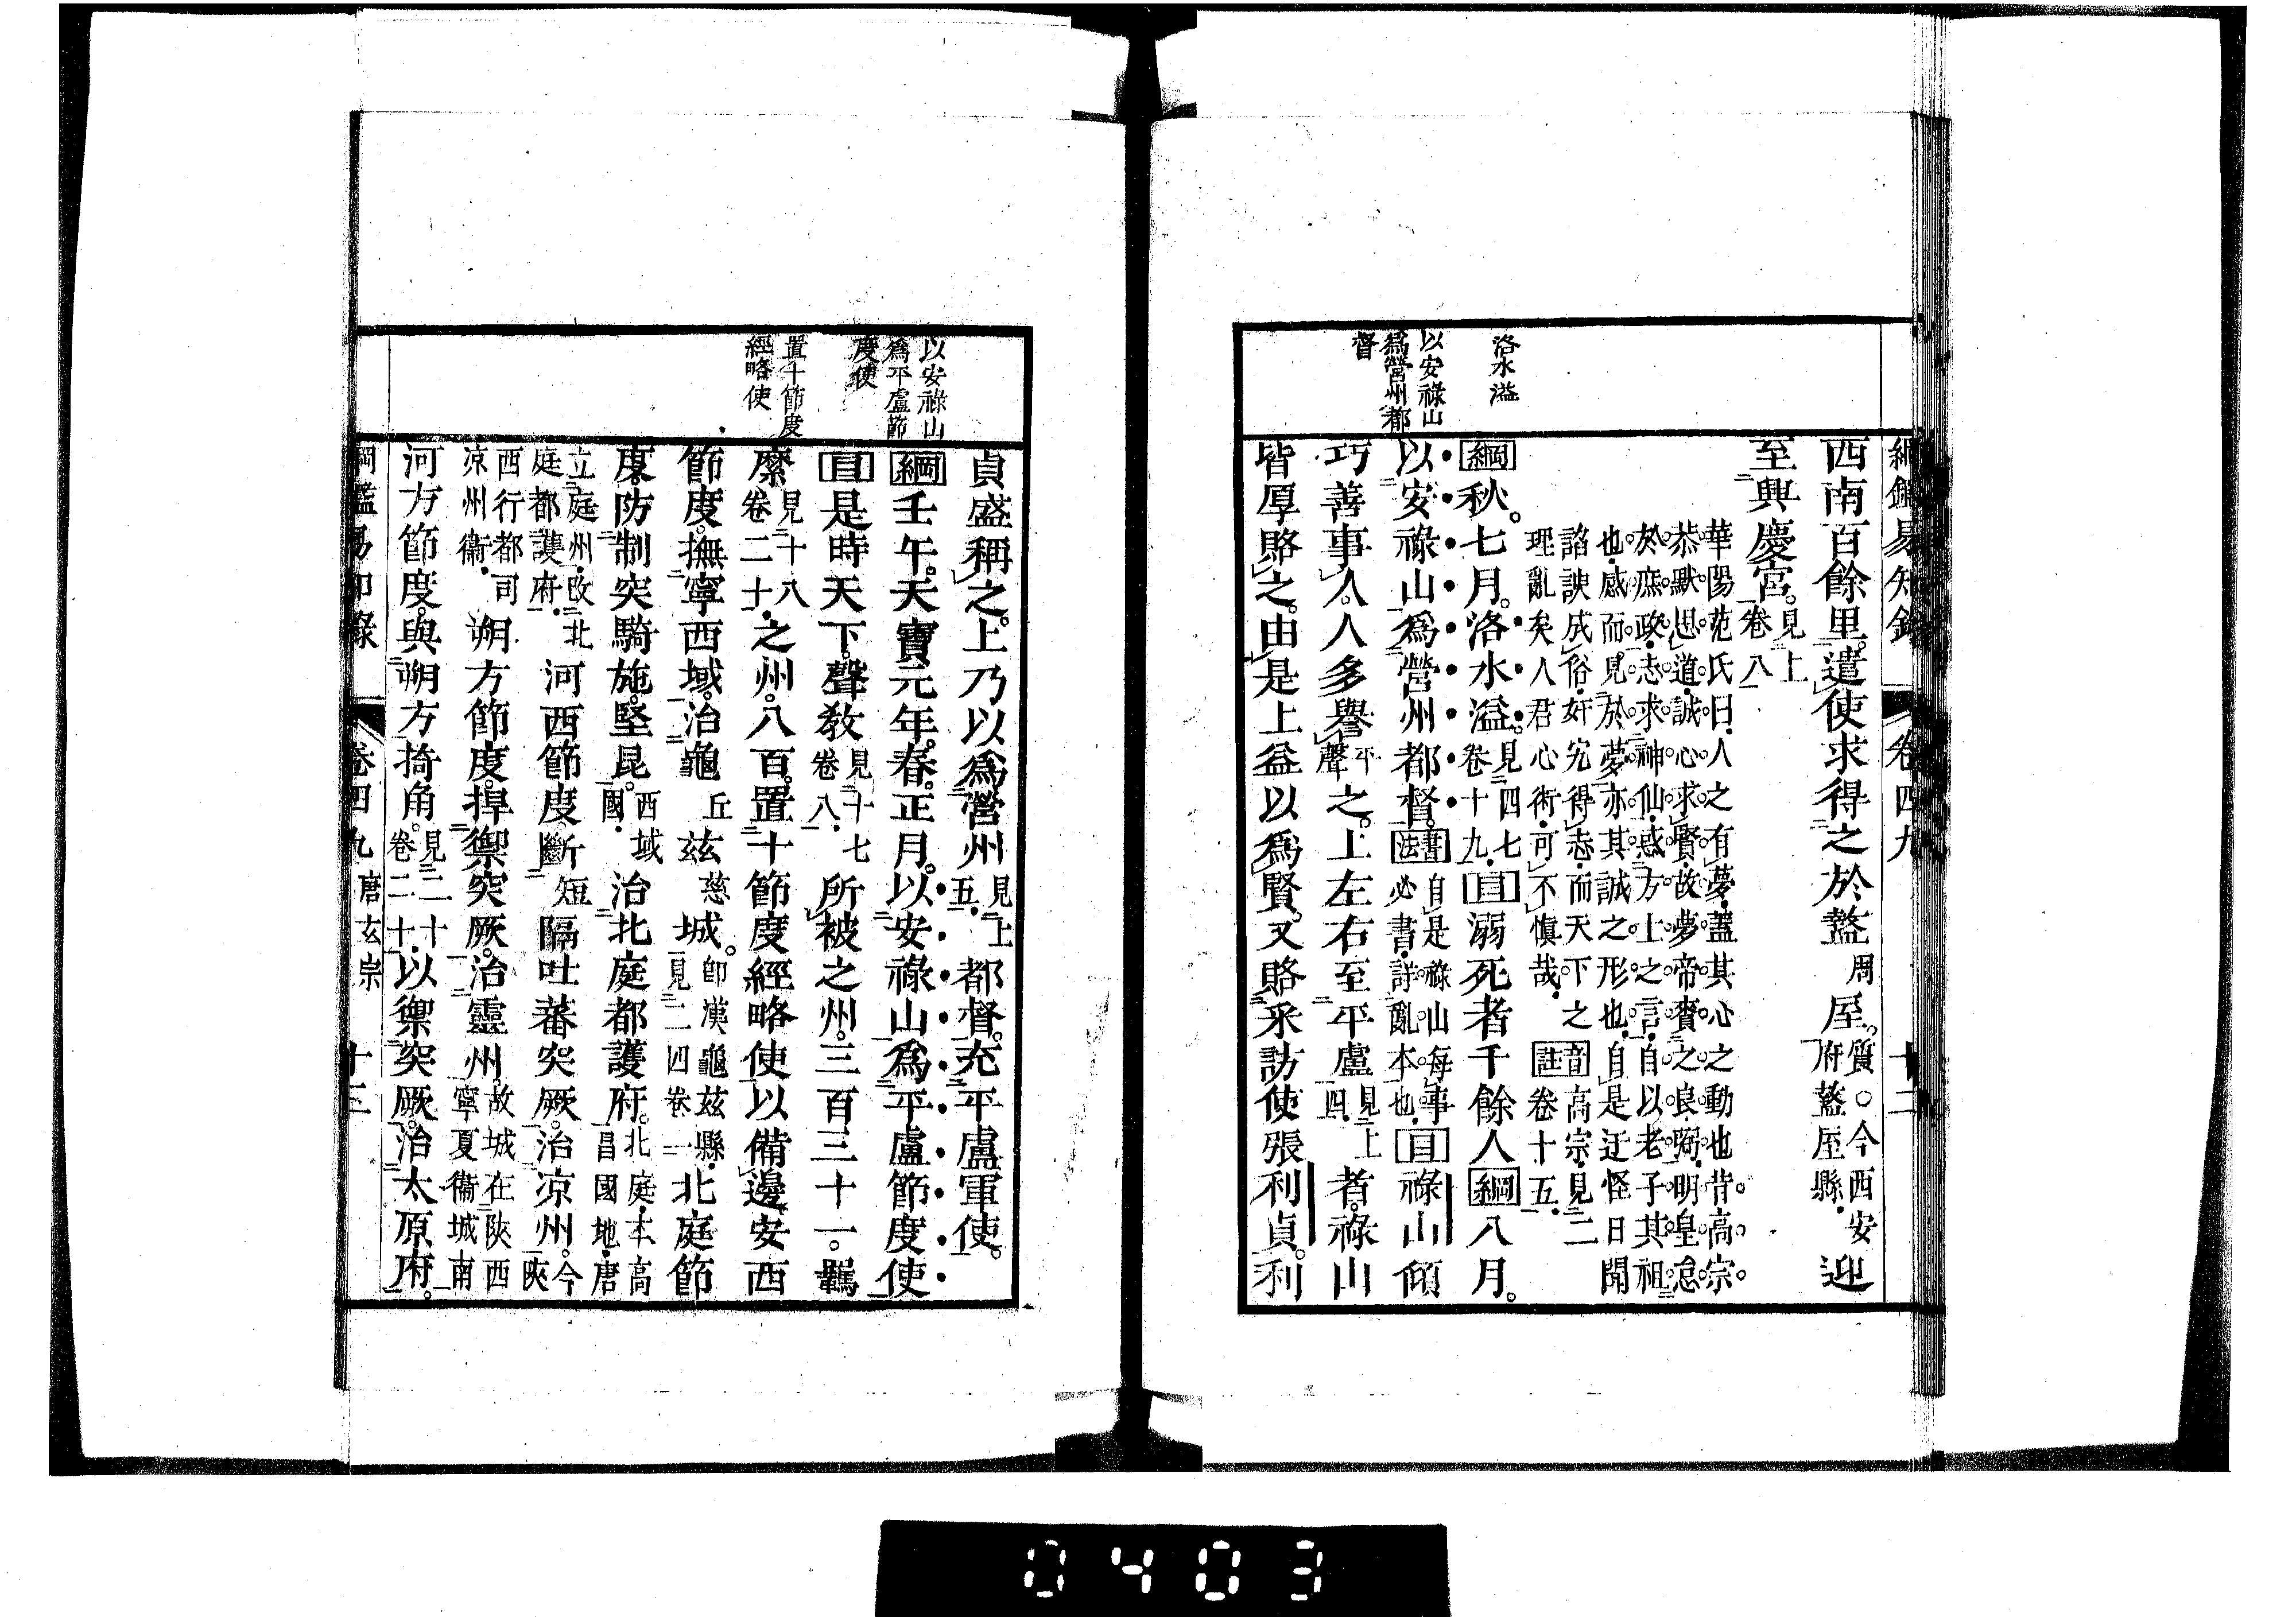 綱鑑易知錄 卷四九 十二
洛水溢
以安祿山
爲營州都
督
西南百餘里。遣使求得之於盩周厔。質○今西安府盩厔縣迎
至興慶宮。見上卷八
華陽范氏曰人之有夢蓋其心之動也昔高宗
恭默思道誠心求賢故夢帝賚之良弼明皇怠
於庶政志求神仙惑方士之言自以老子其祖
也感而見於夢亦其誠之形也自是迂怪日聞
諂諛成俗奸宄得志而天下之
理亂矣人君心術可不慎哉 音註高宗見二卷十五
綱秋。七月。洛水溢。見四七卷十九目溺死者千餘人綱八月。
以安祿山爲營州都督。書法自是祿山每事必書詳亂本也目祿山傾
巧善事人。人多譽平聲之。上左右至平盧見上四者。祿山
皆厚賂之。由是上益以爲賢。又賂采訪使張利貞。利
以安祿山
爲平盧節
度使
置十節度
經略使
貞盛稱之。上乃以爲營州見上五都督。充平盧軍使。
綱壬午。天寶元年。春。正月。以安祿山爲平盧節度使
目是時天下。聲教見十七卷八所被之州。三百三十一。羈
縻見二十八卷二十之州。八百。置十節度經略使以備邊安西
節度。撫寧西域。治龜丘玆慈城。卽漢龜玆縣見二四卷一北庭節
度。防制突騎施。堅昆。西域國治北庭都護府。北庭本高昌國地唐
立庭州改北庭都護府河西節度斷短隔吐蕃突厥。治凉州。今陝
西行都司凉州衞朔方節度。捍禦突厥。治靈州。故城在陝西寧夏衞城南
河方節度。與朔方掎角。見二十卷二十以禦突厥。治太原府。
綱鑑易知錄 卷四九 唐玄宗 十三
0403